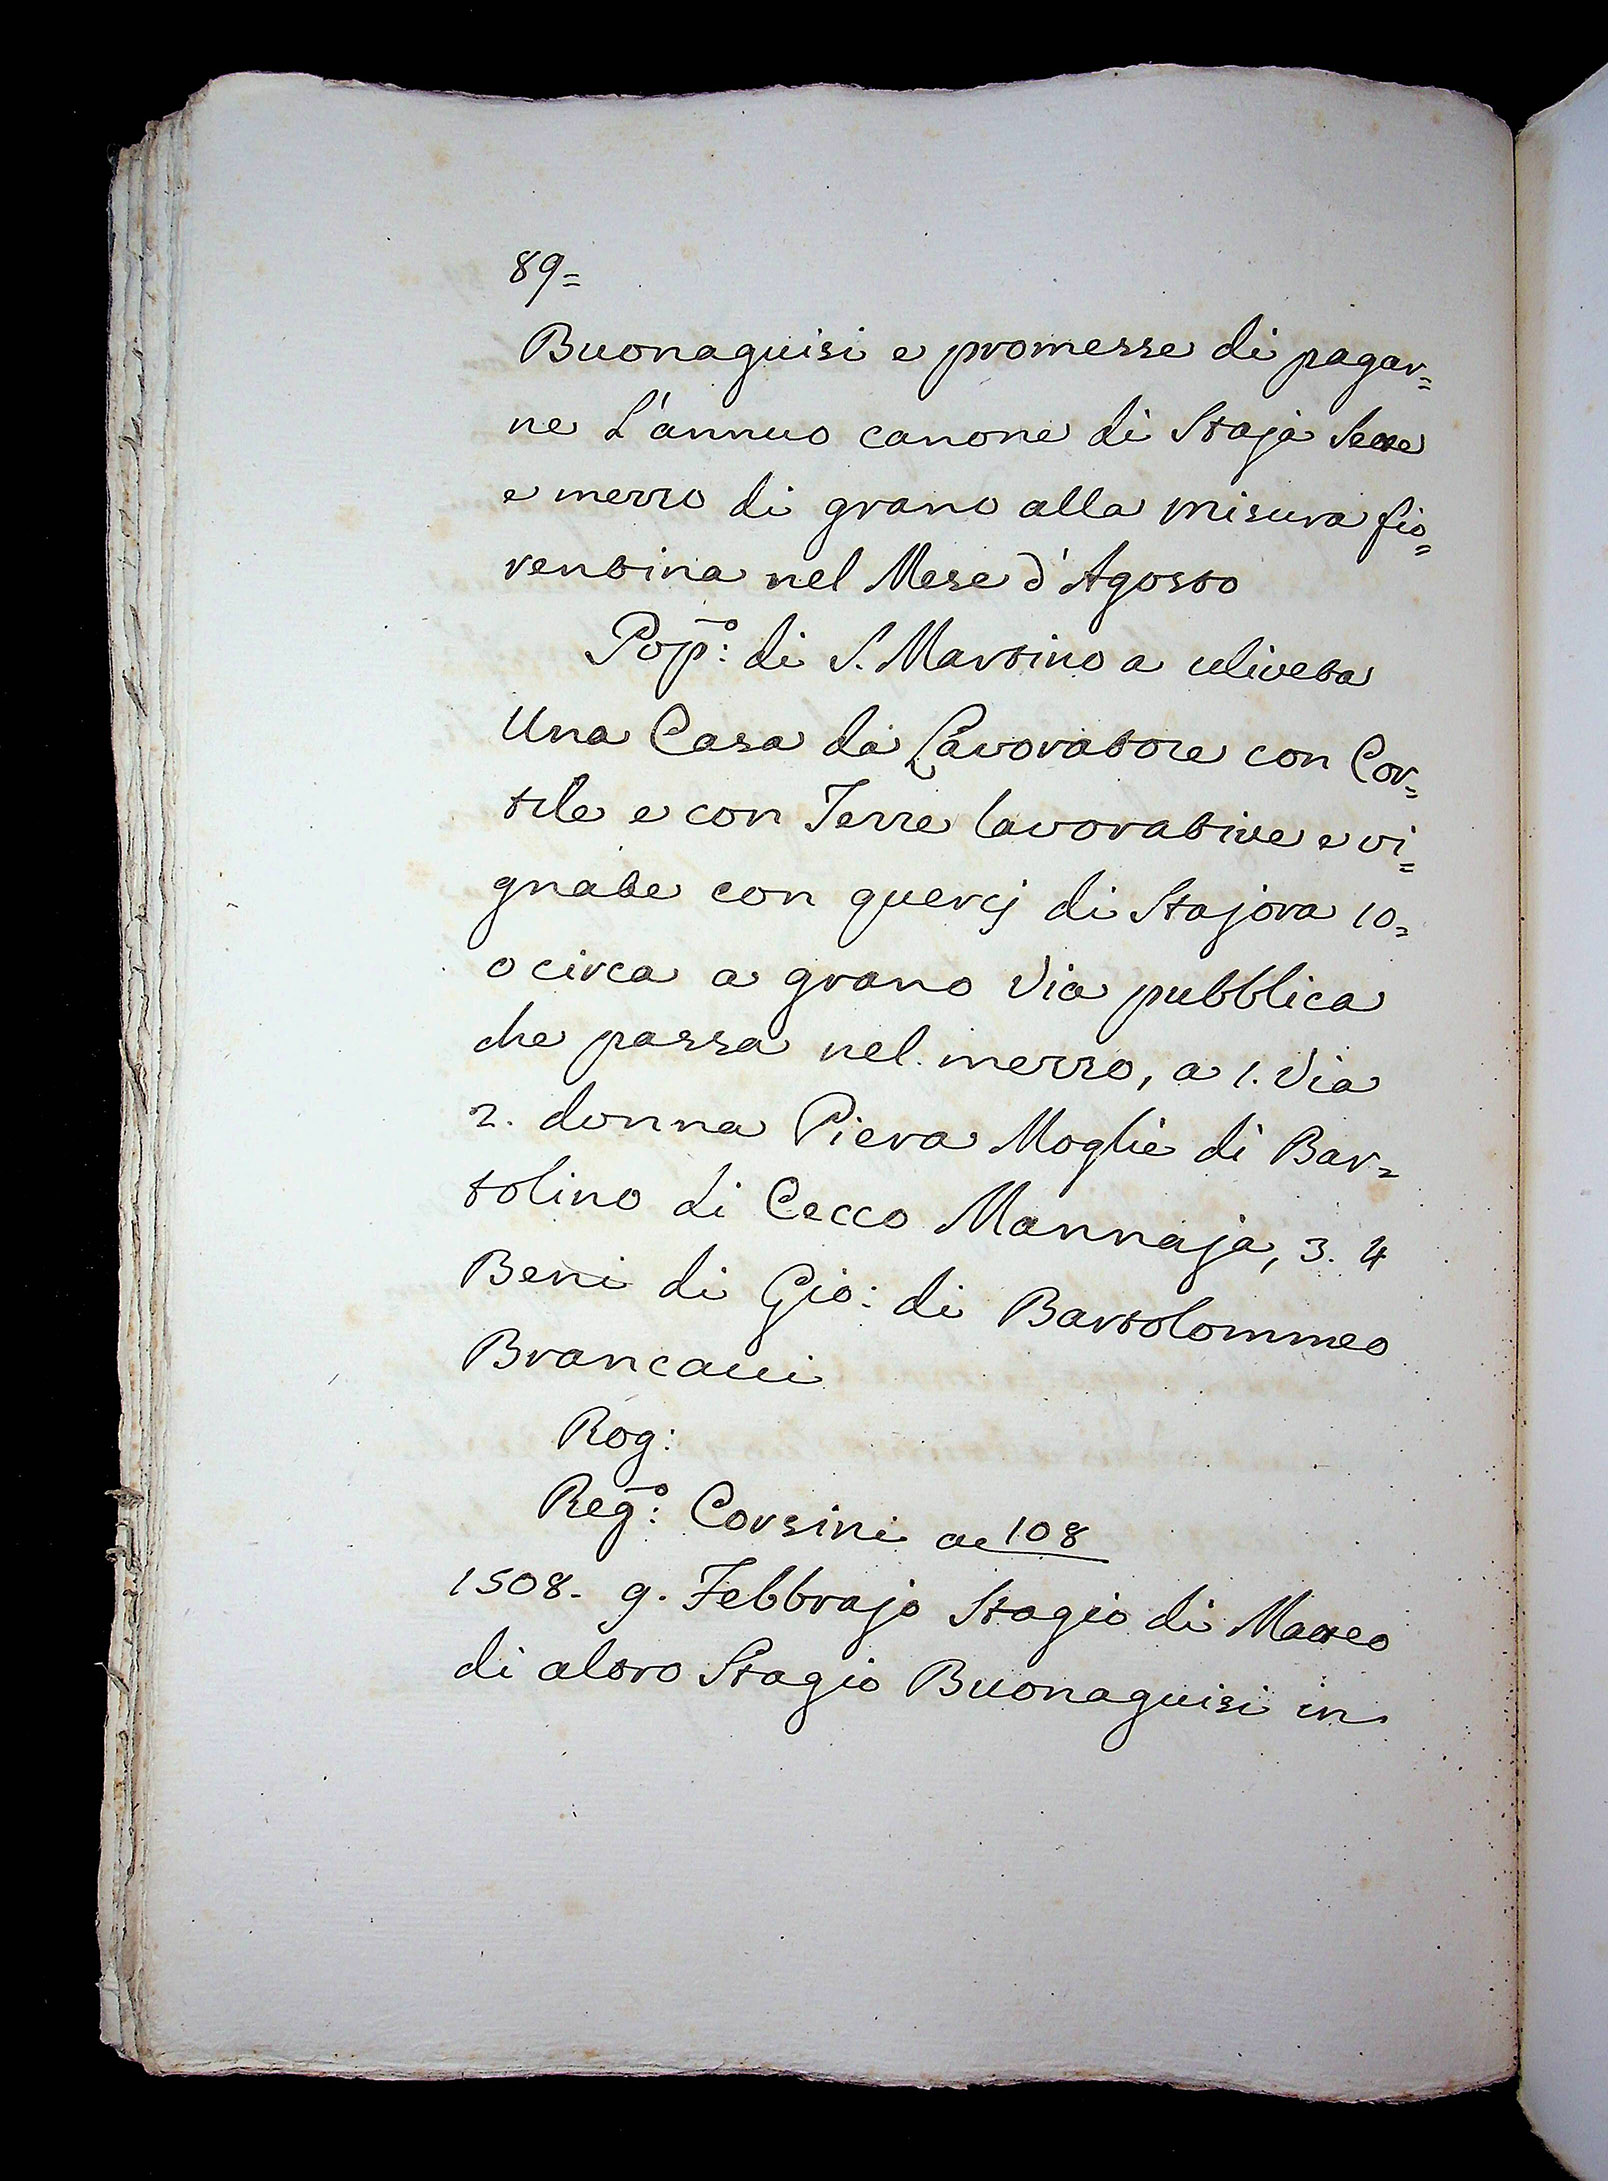 89=
Buonaguisi e promesse di pagar=
ne L'annuo canone di Staja Sette
e mezzo di grano alla misura fio=
rentina nel Mese d'Agosto
Pop:º di S. Martino a uliveta
Una Casa da Lavoratore con Cor=
tile e con Terre lavorative e vi=
gnate con quercj di Stajora 10=
o circa a grano Via pubblica
che passa nel mezzo, a 1. Via
2. donna Piera Moglie di Bar=
tolino di Cecco Mannaja, 3. 4
Beni di Gio: di Bartolommeo
Brancacci
Rog:
Reg:º Corsini a 108
1508. 9. Febbrajo Stagio di Matteo
di altro Stagio Buonaguisi in